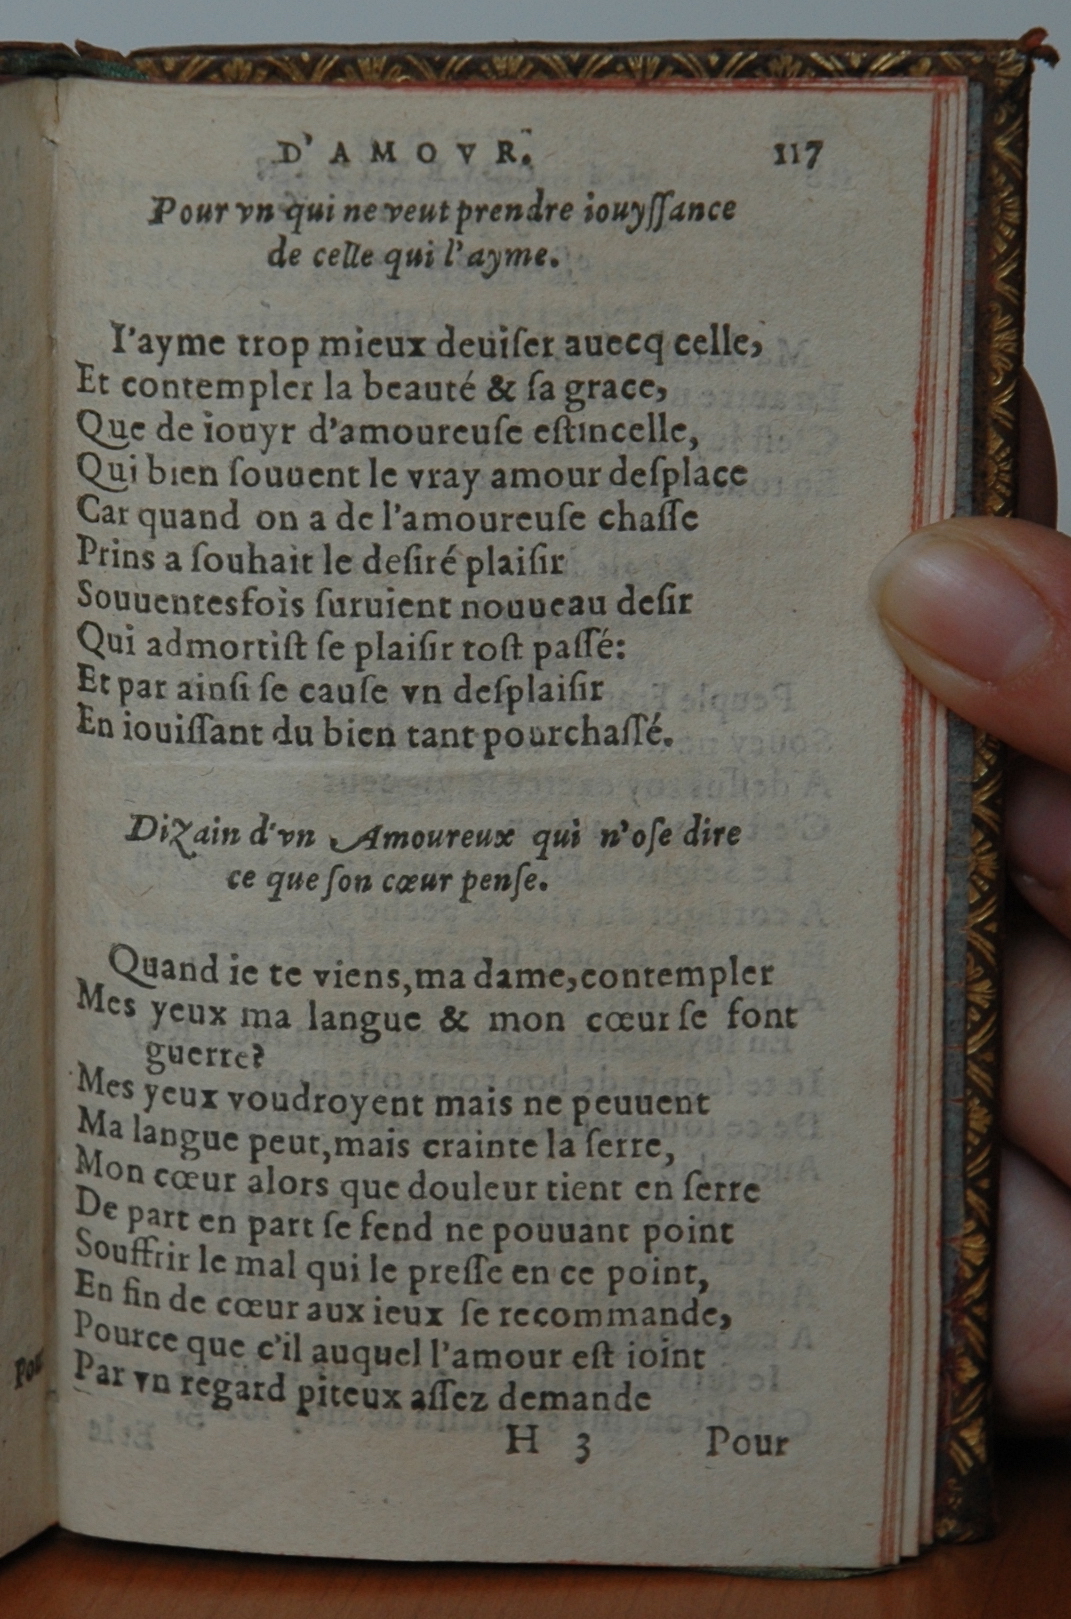 D'AMOVR. 117
Pour vn qui ne veut prendre iouyſſance
de celle qui l'ayme.
I'ayme trop mieux deuiſer auecq celle,
Et contempler la beauté & ſa grace,
Que de iouyr d'amoureuſe eſtincelle,
Qui bien ſouuent le vray amour deſplace
Car quand on a de l'amoureuſe chaſſe
Prins a ſouhait le deſiré plaiſir
Souuentesfois ſuruient nouueau deſir
Qui admortiſt ſe plaiſir toſt paſſé:
Et par ainſi ſe cauſe vn deſplaiſir
En iouiſſant du bien tant pourchaſſé.
Dizain d'vn Amoureux qui n'oſe dire
ce que ſon cœur penſe.
Quand ie te viens, ma dame, contempler
Mes yeux ma langue & mon cœur ſe font
guerre?
Mes yeux voudroyent mais ne peuuent
Ma langue peut, mais crainte la ſerre,
Mon cœur alors que douleur tient en ſerre
De part en part ſe fend ne pouuant point
Souffrir le mal qui le preſſe en ce point,
En fin de cœur aux ieux ſe recommande,
Pource que c'il auquel l'amour eſt ioint
Par vn regard piteux aſſez demande
H 3 Pour